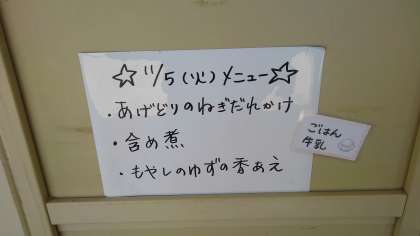 ☆11/5(火)メニュー☆
・あげどりのねぎだれかけ
・含め煮
・もやしのゆずの香あえ
ごはん
牛乳